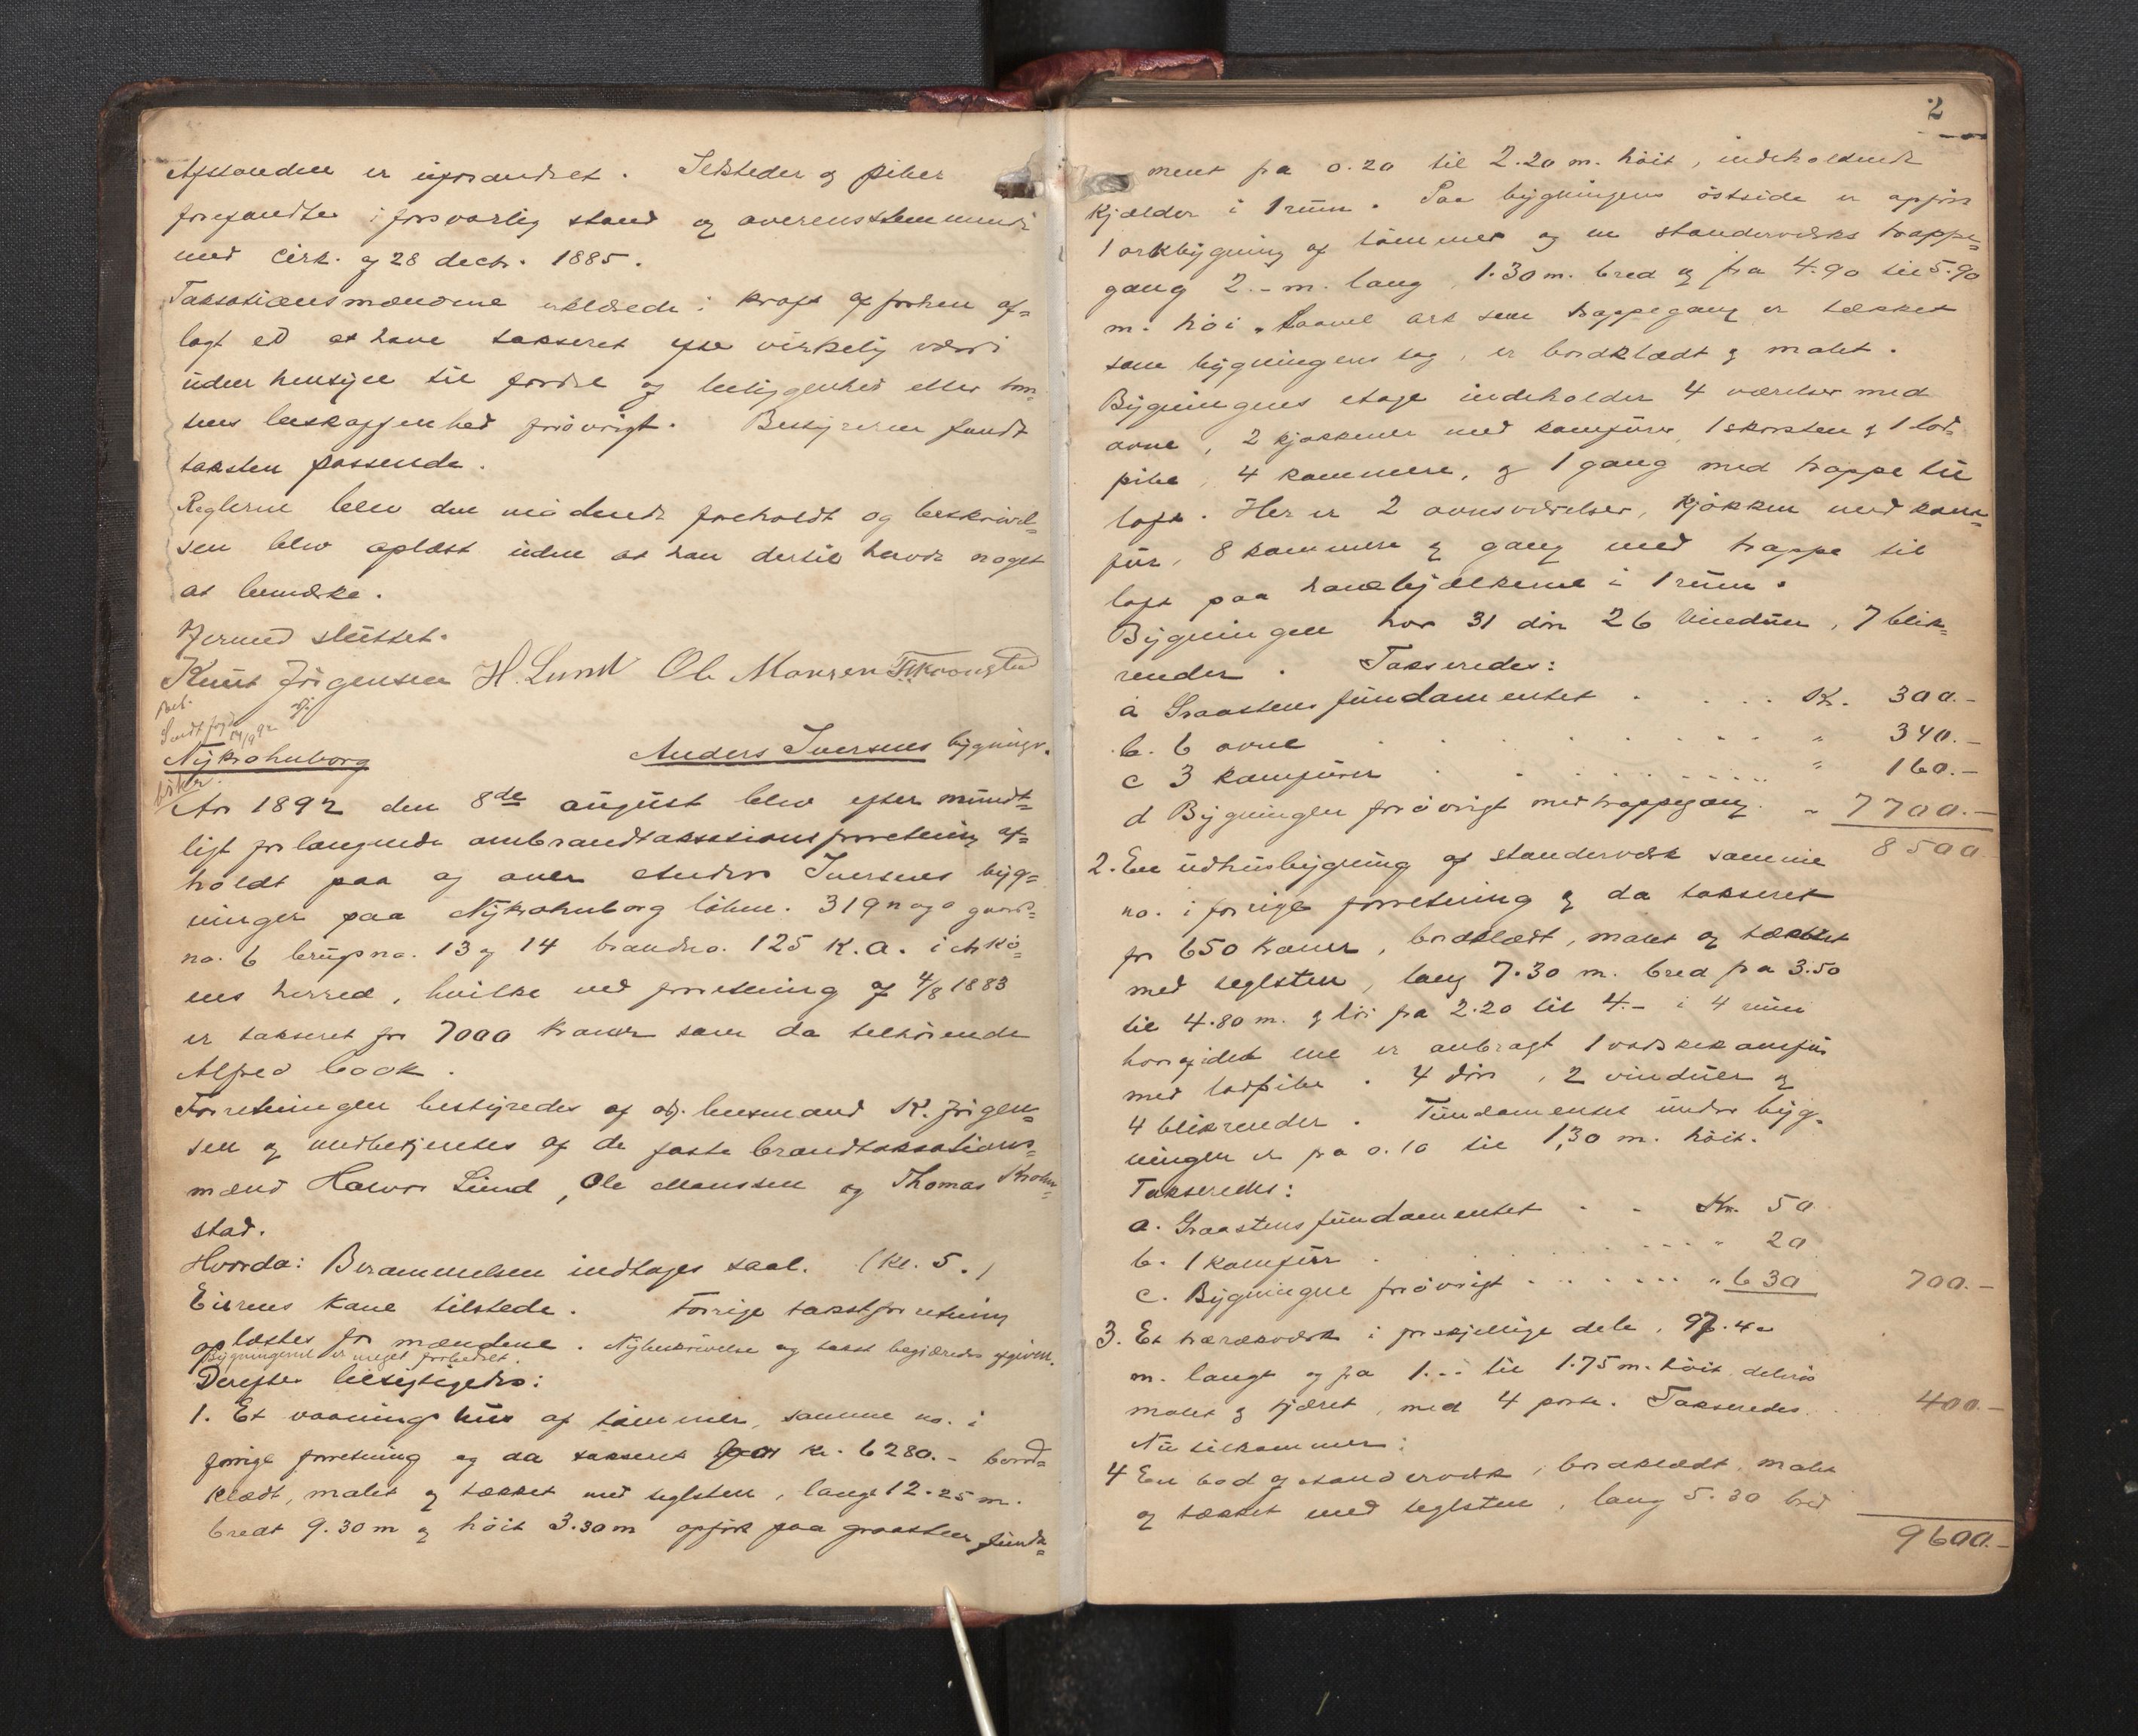 Afstanden er uforandret. Ildsteder og piber
forefandtes i forsvarlig stand og overensstemmende
med cirk. af 28 decbr. 1885.
Taksationsmændene erklærede i kraft af forhen af=
lagt ed at have takseret efter virkelig værdi
uden hensyn til fordel og beliggenhed eller tom=
tens beskaffenhed forøvrigt. Bestyreren fandt
taksten passende.
Reglerne blev den mødende foreholdt og beskrivel=
sen blev oplæst uden at han dertil havde noget
at bemærke.
Hermed sluttet.
Knut Jörgensen H. Lund Ole Monsen T. Kronstad
Bet.
Sendt
14/9 92
Nykrohnborg Anders Iversens bygninger.
Aar 1892 den 8de august blev efter mundt=
ligt forlangende ombrandtaksationsforretning af=
holdt paa og over Anders Iversens byg=
ninger paa Nykrohnborg löbnr. 319 n og o gaards=
no. 6 brugsno. 13 og 14 brandno. 125 K.a. i Askö=
ens herred, hvilke ved forretning af 4/8 1883
er takseret for 7000 kroner som da tilhörende
Alfred Cook.
Forretningen bestyredes af cst. lensmand K. Jörgen=
sen og medbetjentes af de faste brandtaksations=
mænd Halvor Lund, Ole Monsen og Thomas Krohn=
stad.
Hvorda: Berammelsen indtages saal. (Kl. 5.)
Eierens kone tilstede. Forrige takstforretning
oplæstes for mændene. Nybeskrivelse og takst begjæredes afgiven.
Bygningerne er meget forbedret.
Derefter besigtigedes:
1. Et vaaningshus af tömmer, samme no. i
forrige forretning og da takseret for kr. 6280.- bord=
klædt, malet og tækket med teglsten, langt 12.25 m.
bredt 9.30 m og höit 3.30 m opfört paa graastens funda=
2
ment fra 0.20 til 2.20 m. höit, indeholdende
kjælder i 1 rum. Paa bygningens östside er opfört
1 arkbygning af tömmer og en stenderværks trappe=
gang 2.- m. lang, 1.30 m. bred og fra 4.90 til 5.90
m. höi. Saavel ark som trappegang er tækket
som bygningens tag, er bordklædt og malet.
Bygningens etage indeholder 4 værelser med
ovne, 2 kjökkener med komfurer, 1 skorsten og 1 lod=
pibe, 4 kammere, og 1 gang med trappe til
loft. Her er 2 ovnsværelser, kjökken med kom=
fur, 8 kammere og gang med trappe til
loft paa hanebjælkerne i 1 rum.
Bygningen har 31 dör 26 vinduer, 7 blik=
render. Takseredes:
a Graastensfundamentet . . . . Kr. 300.-
b. 6 ovne . . . . . . . . " 340.-
c 3 komfurer . . . . . . . " 160.-
d Bygningen forøvrigt med trappegang. " 7700.-
8500.
2. En udhusbygning af stenderværk samme
no. i forrige forretning og da takseret
for 650 kroner, bordklædt, malet og tækket
med teglsten, lang 7.30 m. bred fra 3.50
til 4.80 m. og höi fra 2.20 til 4.- i 4 rum
hvoraf i det ene er anbragt 1 vadskekomfur
med lodpibe. 4 dör, 2 vinduer og
4 blikrender. Fundamentet under byg=
ningen er fra 0.10 til 1,30 m. höit.
Takseredes:
a. Graastensfundamentet . . Kr. 50
b. 1 komfur . . . . . . . " 20
c. Bygningen forøvrigt . . . . . . " 630 700.-
3. Et træræksværk i forskjellige dele, 97.40
m. langt og fra 1.- til 1.75 m. höit delvis
malet og tjæret, med 4 porte. Takseredes . . 400.-
Nu tilkommer:
4 En bod af stenderværk, bordklædt, malet
og tækket med teglsten, lang 5.30 bred
9600.-